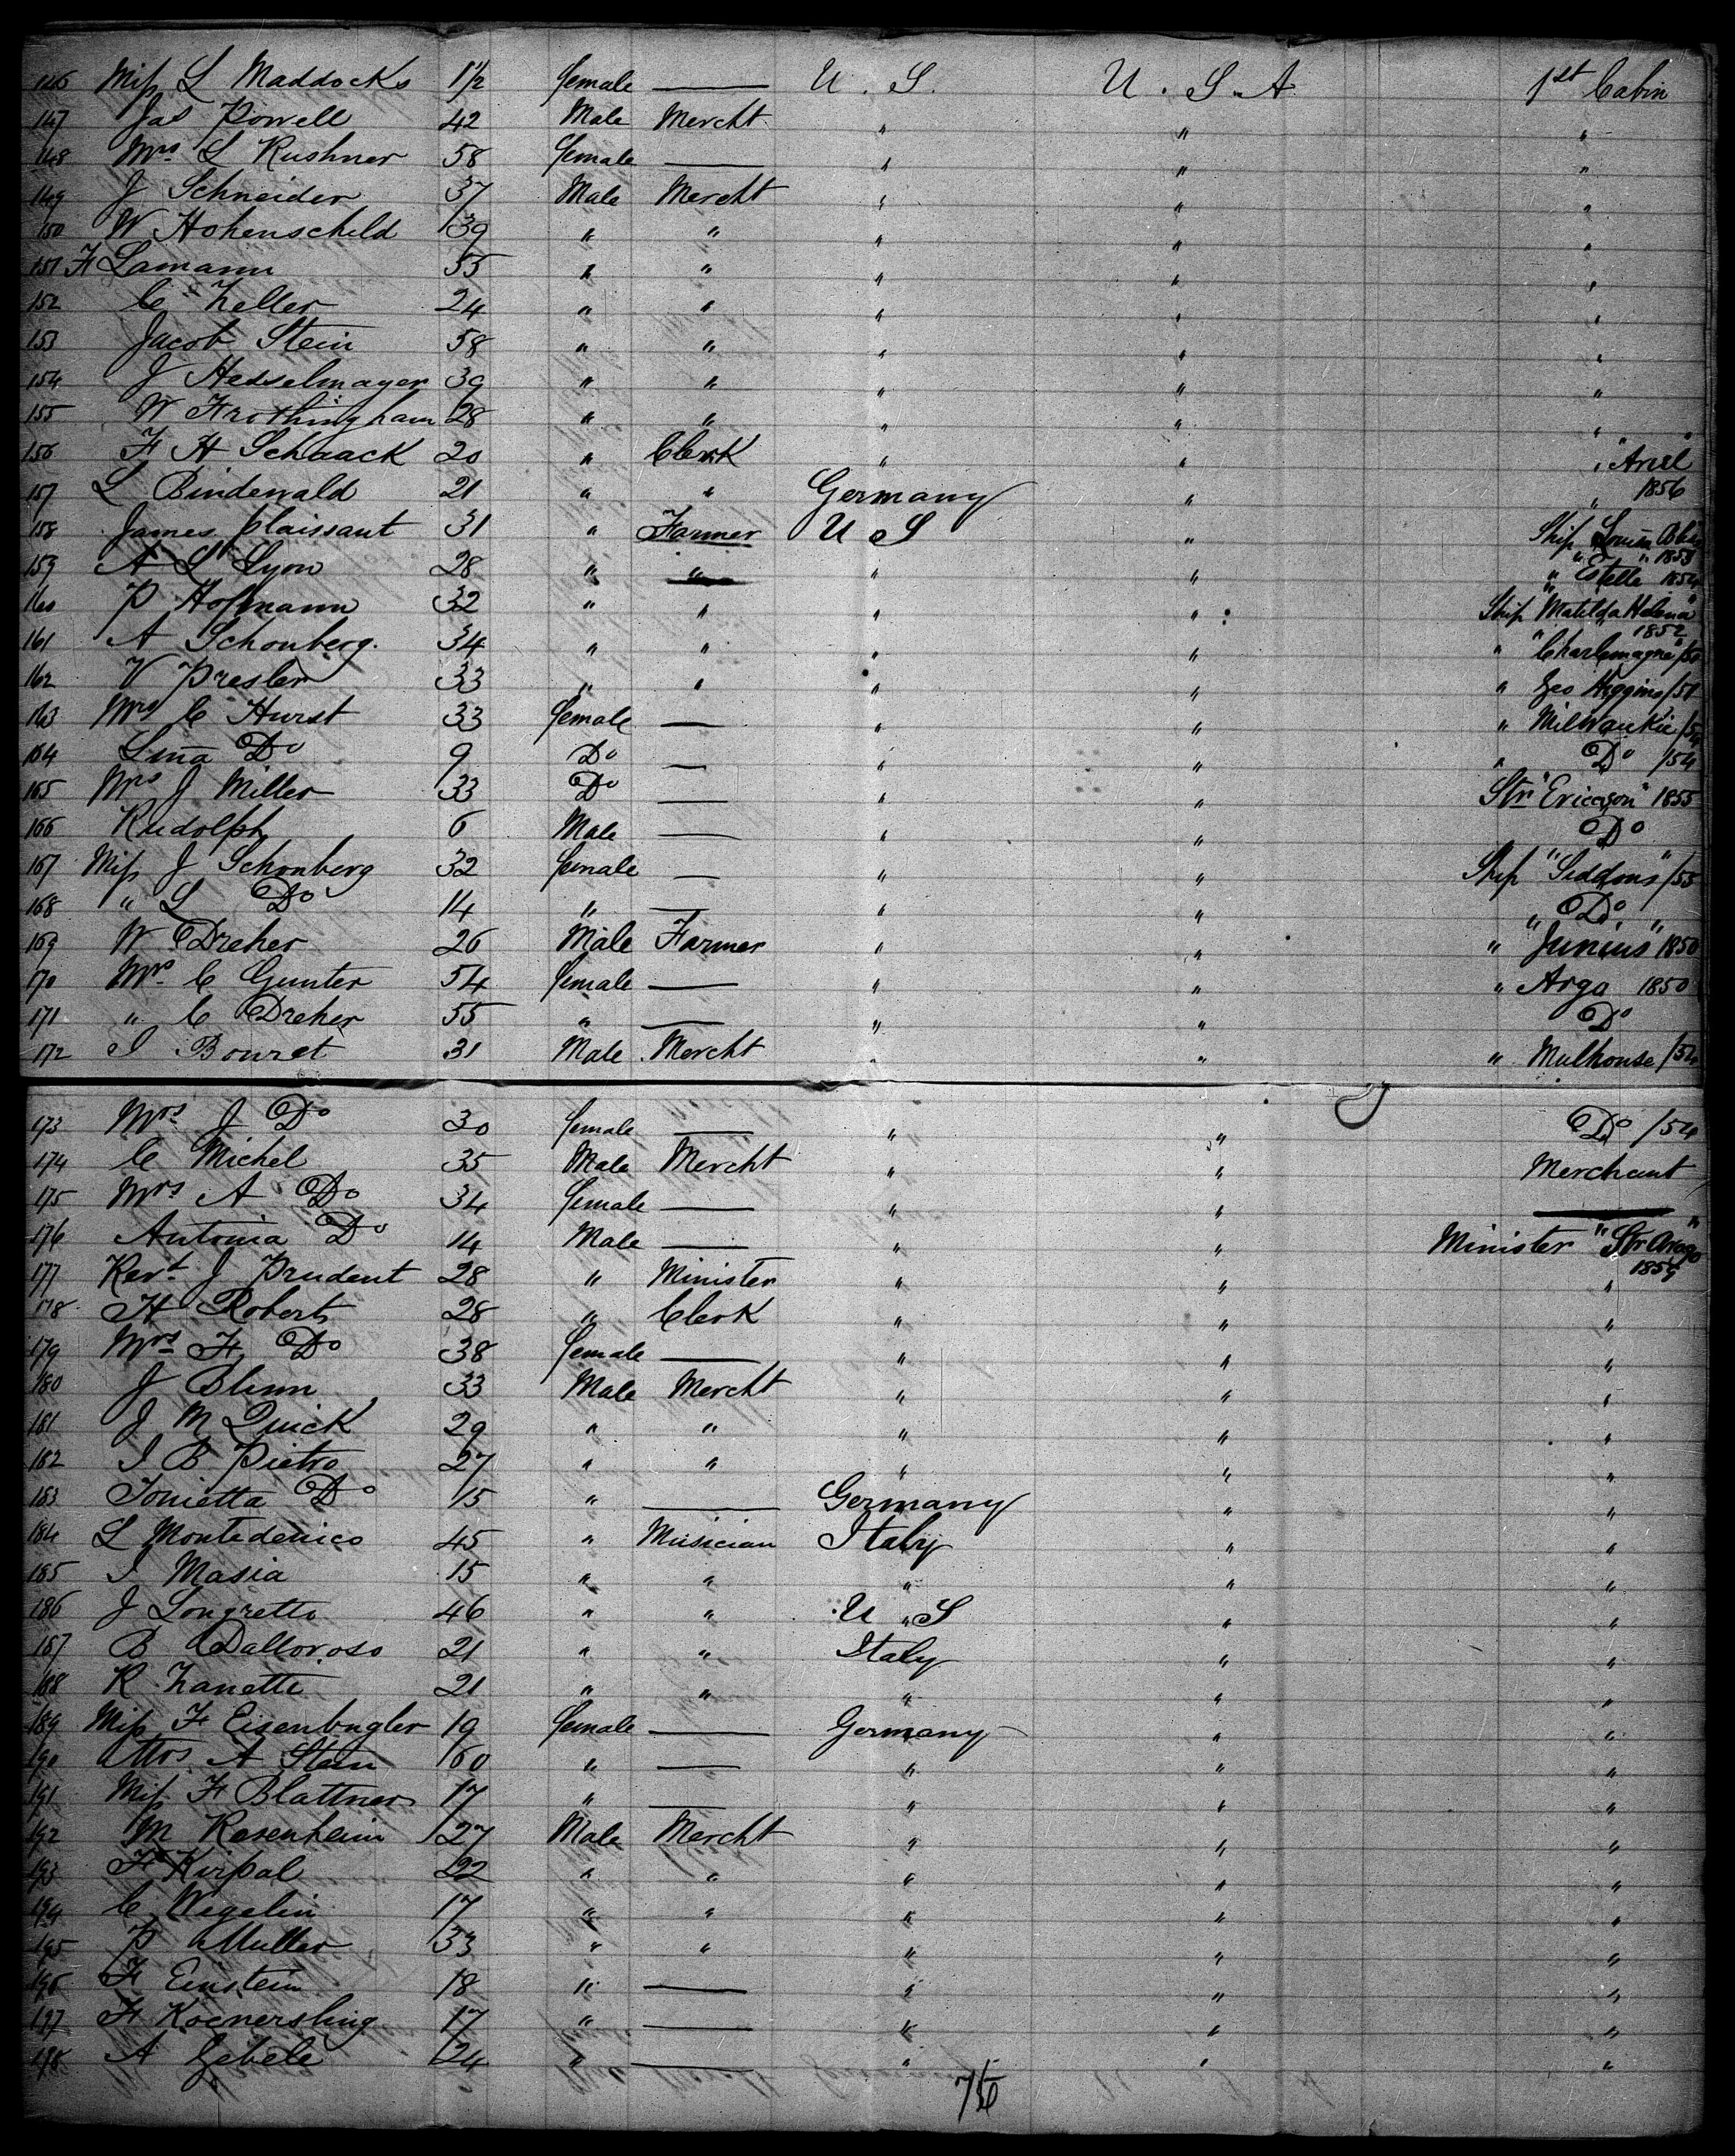 146 Miss L Maddocks 1 1/2 female — U. S. U. S. A 1st Cabin
147 Jas Powell 42 Male Mercht " " "
148 Mrs L Kushner 58 female — " " "
149 J Schneider 37 Male Mercht " " "
150 W Hohenscheld 39 " " " " "
151 F Lamann 35 " " " " "
152 C Zeller 24 " " " " "
153 Jacob Stein 58 " " " " "
154 J Hesselmayer 39 " " " " "
155 W Frothingham 28 " " " " "
156 F H Schaack 20 " Clerk " " " "Ariel"
157 L Bindewald 21 " " Germany " " 1856
158 James Plaissant 31 " Farmer U S " Ship Louisa
159 A L Lyon 28 " " " " " Estelle 1854
160 P Hofmann 32 " " " " Ship "Matilda Helena" 1852
161 A Schonberg 34 " " " " " "Charlemagne"
162 V Presler 33 " " " " " Geo Higgins /51
163 Mrs C Hurst 33 female — " " " Milwaukie /54
164 Lina Do 9 Do — " " " Do /54
165 Mrs J Miller 33 Do — " " Str "Ericsson" 1855
166 Rudolph 6 Male — " " Do
167 Miss J Schonberg 32 female — " " Ship "Siddons" /55
168 " L Do 14 " — " " " Do
169 W Dreher 26 Male Farmer " " " "Junius" 1850
170 Mrs C Gunter 54 female — " " " Argo 1850
171 " C Dreher 55 " — " " Do
172 I Bouret 31 Male Mercht " " " Mulhouse /54
173 Mrs J Do 30 female — " " Do /54
174 C Michel 35 Male Mercht " " Merchant
175 Mrs A Do 34 female — " " —
176 Antonia Do 14 Male — " " Minister "Str Arago"
177 Revt J Prudent 28 " Minister " " " 1859
178 H Roberts 28 " Clerk " " "
179 Mrs F Do 38 female — " " "
180 J Blum 33 Male Mercht " " "
181 J M Quick 29 " " " " "
182 I B Pietro 27 " " " " "
183 Tonietta Do 15 " — Germany " "
184 L Montedenico 45 " Musician Italy " "
185 I Masia 15 " " " " "
186 J Longretto 46 " " U S " "
187 B Dalloroso 21 " " Italy " "
188 R Zanette 21 " " " " "
189 Miss F Eisenbugler 19 female — Germany " "
190 Mrs A Stein 60 " — " " "
191 Miss F Blattner 17 " — " " "
192 M Rosenheim 27 Male Mercht " " "
193 F Kirpal 22 " " " " "
194 C Wegelin 17 " " " " "
195 P Muller 33 " " " " "
196 F Einstein 18 " — " " "
197 F Koenersling 17 " — " " "
198 A Gebele 24 " — " " "